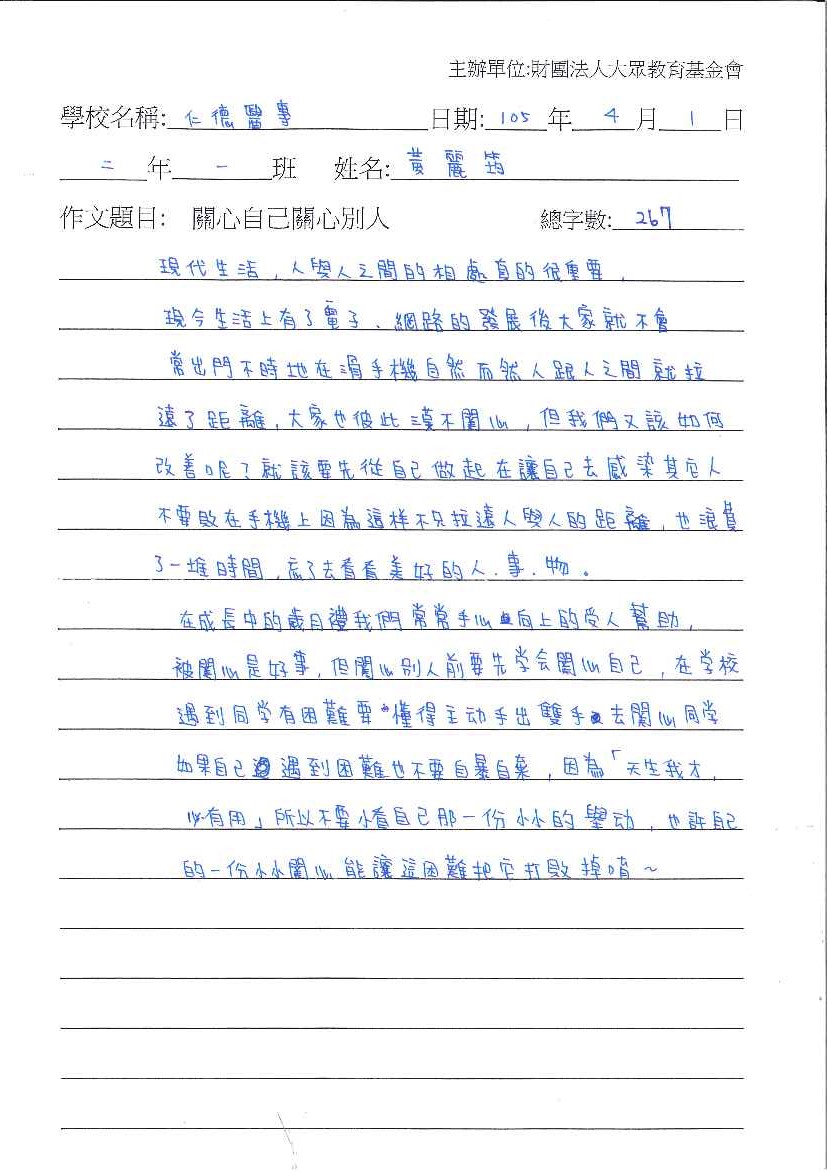 主辦單位:財團法人大眾教育基金會
學校名稱: 仁德醫專 日期: 105 年 4 月 1 日
二 年 一 班 姓名: 黃麗筠
作文題目: 關心自己關心別人 總字數: 267
現代生活,人與人之間的相處真的很重要,
現今生活上有了電子、網路的發展後大家就不會
常出門不時地在滑手機自然而然人跟人之間就拉
遠了距離,大家也彼此漠不關心,但我們又該如何
改善呢?就該要先從自己做起在讓自己去感染其它人
不要敗在手機上因為這样不只拉遠人與人的距離,也浪費
了一堆時間,忘了去看看美好的人、事、物。
在成長中的歲月裡我們常常手心向上的受人幫助,
被關心是好事,但關心別人前要先学会關心自己,在学校
遇到同学有困難要懂得主动手出雙手去關心同学
如果自己遇到困難也不要自暴自棄,因為「天生我才,
必有用」所以不要小看自己那一份小小的舉动,也許自己
的一份小小關心能讓這困難把它打敗掉唷~